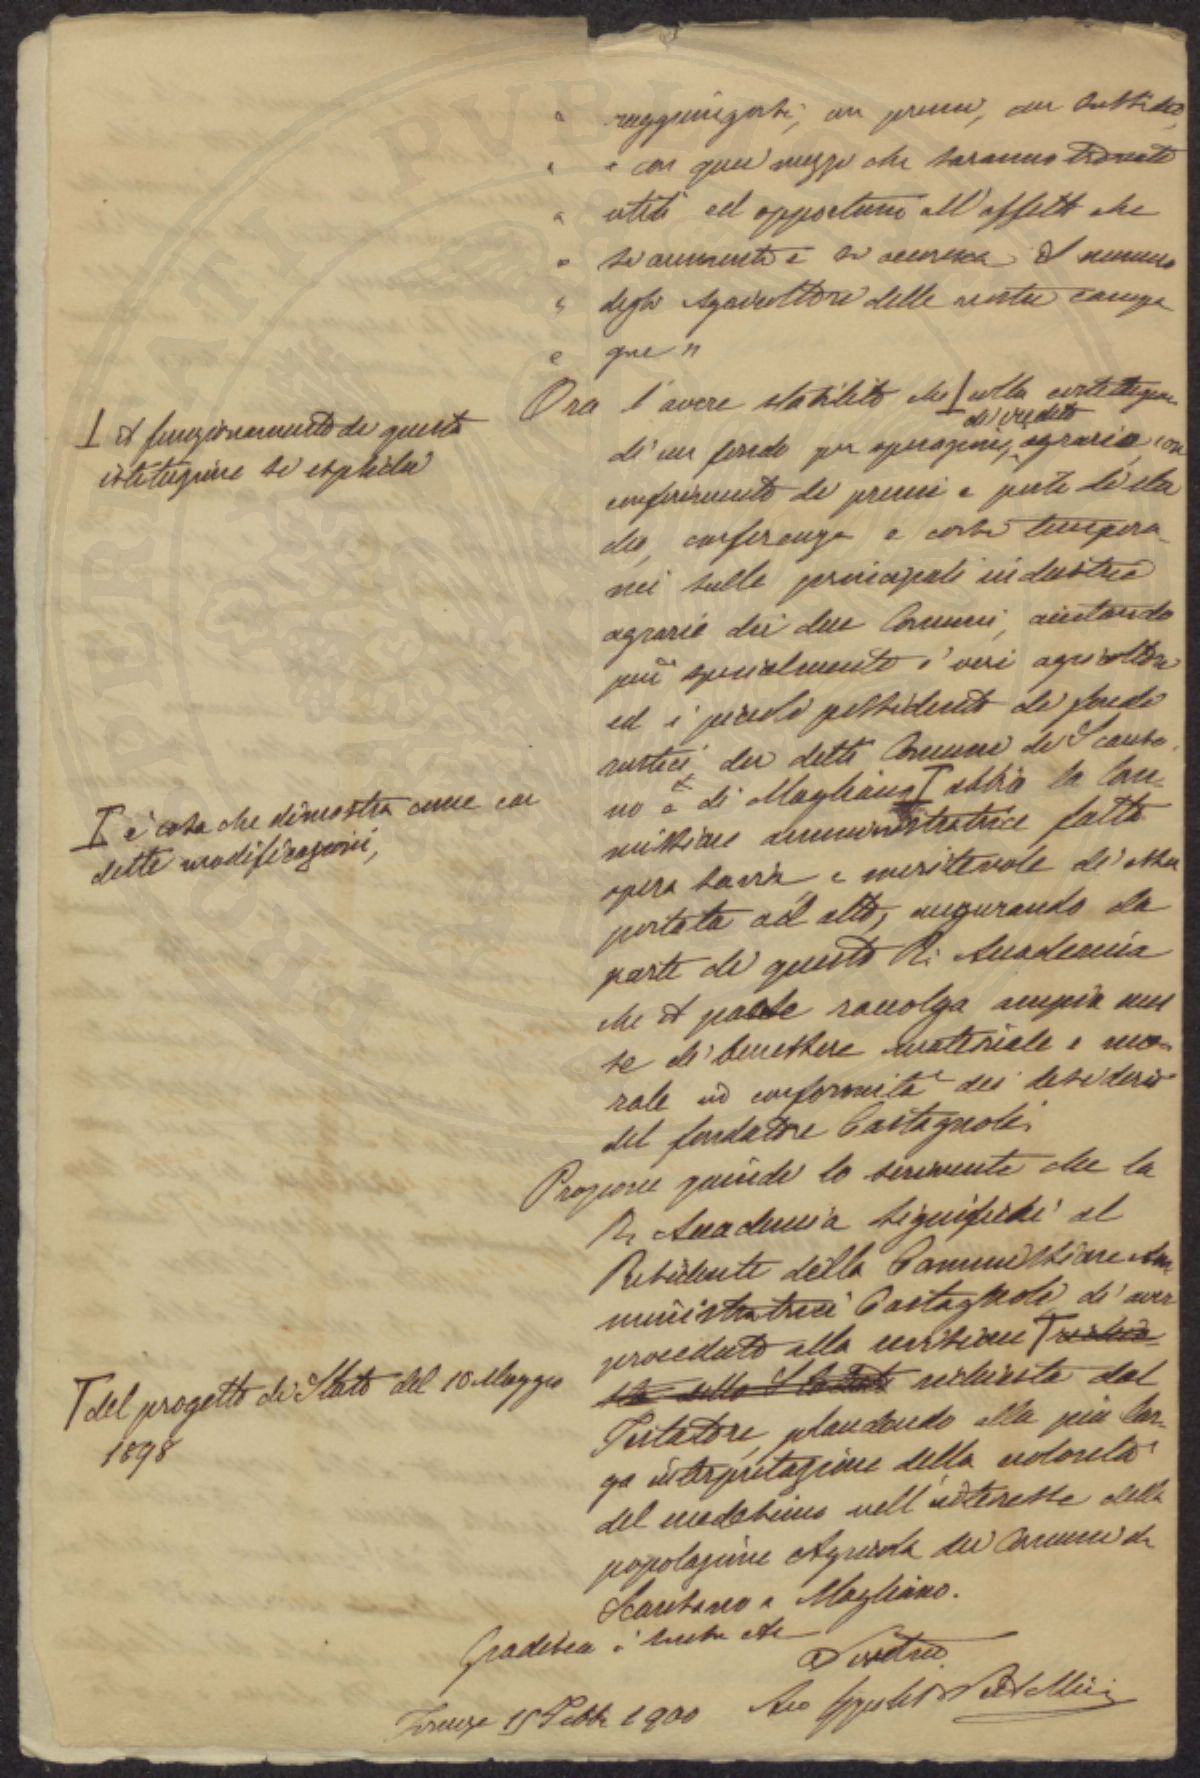 " raggiungersi, con premi, con sussidi,
" e con quei mezzi che saranno trovati
" utili ed opportuni all'effetto che
" si aumenti e si accresca il numero
" degli Agricoltori delle nostre campa
" gne "
Ora l'avere stabilito che I sulla costituzione
I il funzionamento di questa
istituzione si esplichi
di credito
di un fondo per operazioni agrarie, con
conferimento di premi e posti di stu
dio, conferenze e corsi tempora-
nei sulle principali industrie
agrarie dei due Comuni, aiutando
più specialmente i veri agricoltori
ed i piccoli possidenti di fondi
rustici dei detti Comuni di Scansa-
no e di Magliano I abbia la Com-
I è cosa che dimostra come con
dette modificazioni,
missione amministratrice fatto
opera savia e meritevole di esser
portata ad atto, augurando da
parte di questa R. Accademia
che il paese raccolga ampia mes
se di benessere materiale e mo-
rale in conformità dei desideri
del fondatore Castagnoli.
Propone quindi lo scrivente che la
R. Accademia significhi al
Presidente della Commissione Am
ministratrice Castagnoli di aver
proceduto alla revisione T
T del progetto di Stato del 10 Maggio
1898
richiesta dal
Testatore, plaudendo alla più lar-
ga interpretazione della volontà
del medesimo nell'interesse della
popolazione Agricola dei Comuni di
Scansano e Magliano.
Gradisca i sensi etc
Firenze 15 Febb. 1900